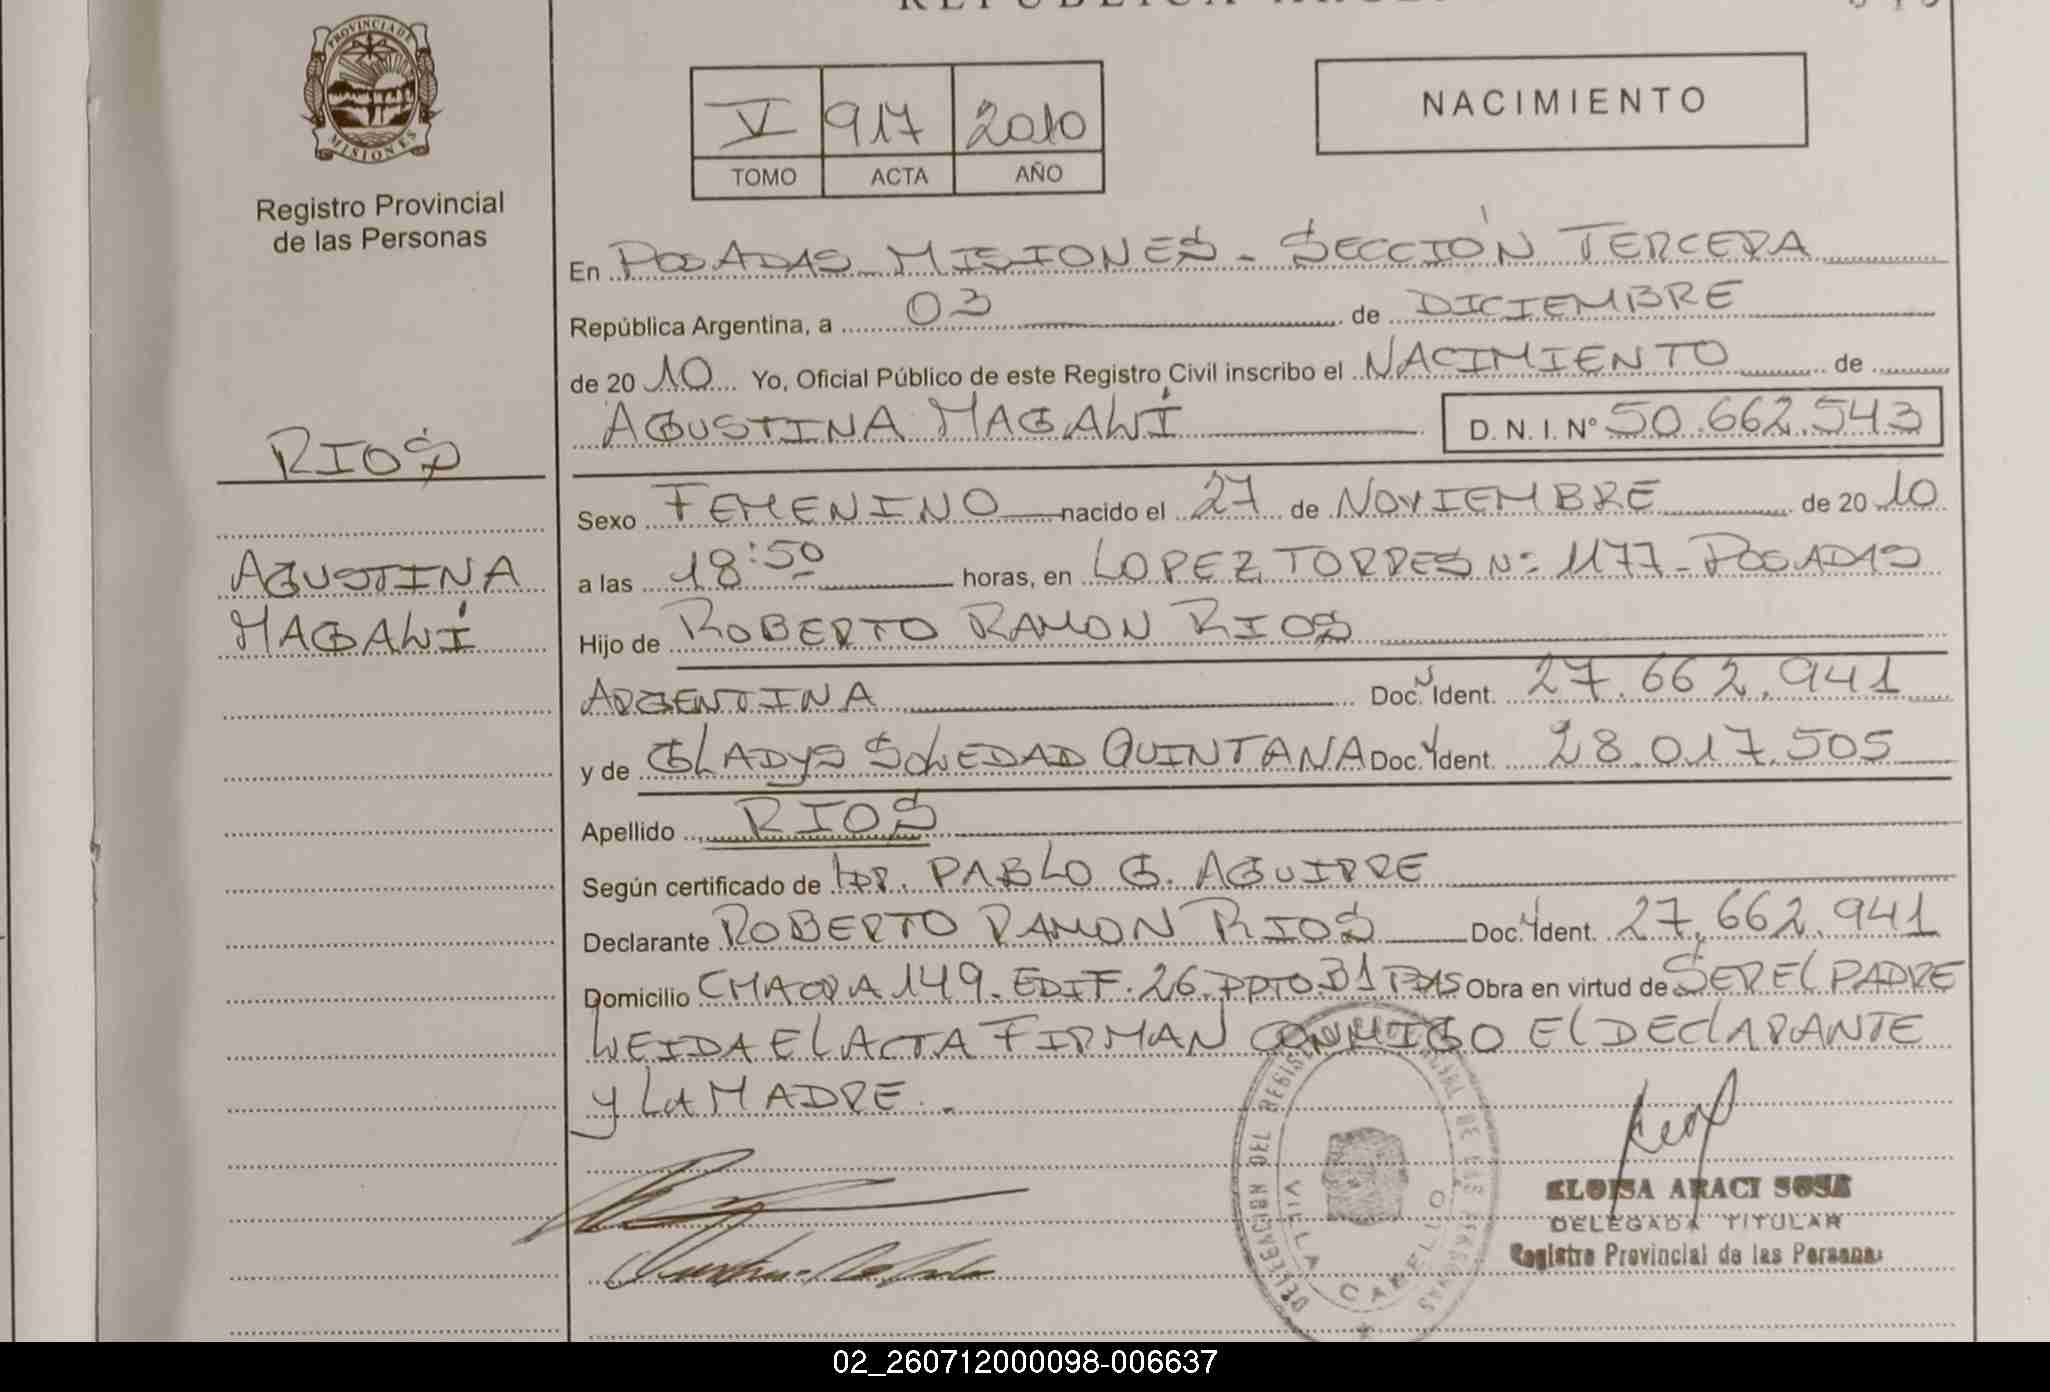 REPUBLICA
PROVINCIA DE
MISIONES
Registro Provincial
de las Personas
V 917 2010
TOMO ACTA AÑO
NACIMIENTO
En POSADAS MISIONES - SECCIÓN TERCERA
República Argentina, a 03 de DICIEMBRE
de 2010 Yo, Oficial Público de este Registro Civil inscribo el NACIMIENTO de
AGUSTINA MAGALÍ D. N. I. Nº 50.662.543
RIOS
Sexo FEMENINO nacido el 27 de NOVIEMBRE de 2010
AGUSTINA
MAGALÍ
a las 18:50 horas, en LOPEZ TORRES Nº 1177 - POSADAS
Hijo de ROBERTO RAMON RIOS
ARGENTINA Doc. Ident. 27.662.941
y de GLADYS SOLEDAD QUINTANA Doc. Ident. 28.017.505
Apellido RIOS
Según certificado de DR. PABLO G. AGUIRRE
Declarante ROBERTO RAMON RIOS Doc. Ident. 27.662.941
Domicilio CHACRA 149. EDIF. 26. DPTO B1 PDAS Obra en virtud de SER EL PADRE
LEIDA EL ACTA FIRMAN CONMIGO EL DECLARANTE
Y LA MADRE.
DELEGACION DEL REGISTRO PROVINCIAL DE LAS PERSONAS
VILLA CABELLO
ELOISA ARACI SOSA
DELEGADA TITULAR
Registro Provincial de las Personas
02_260712000098-006637